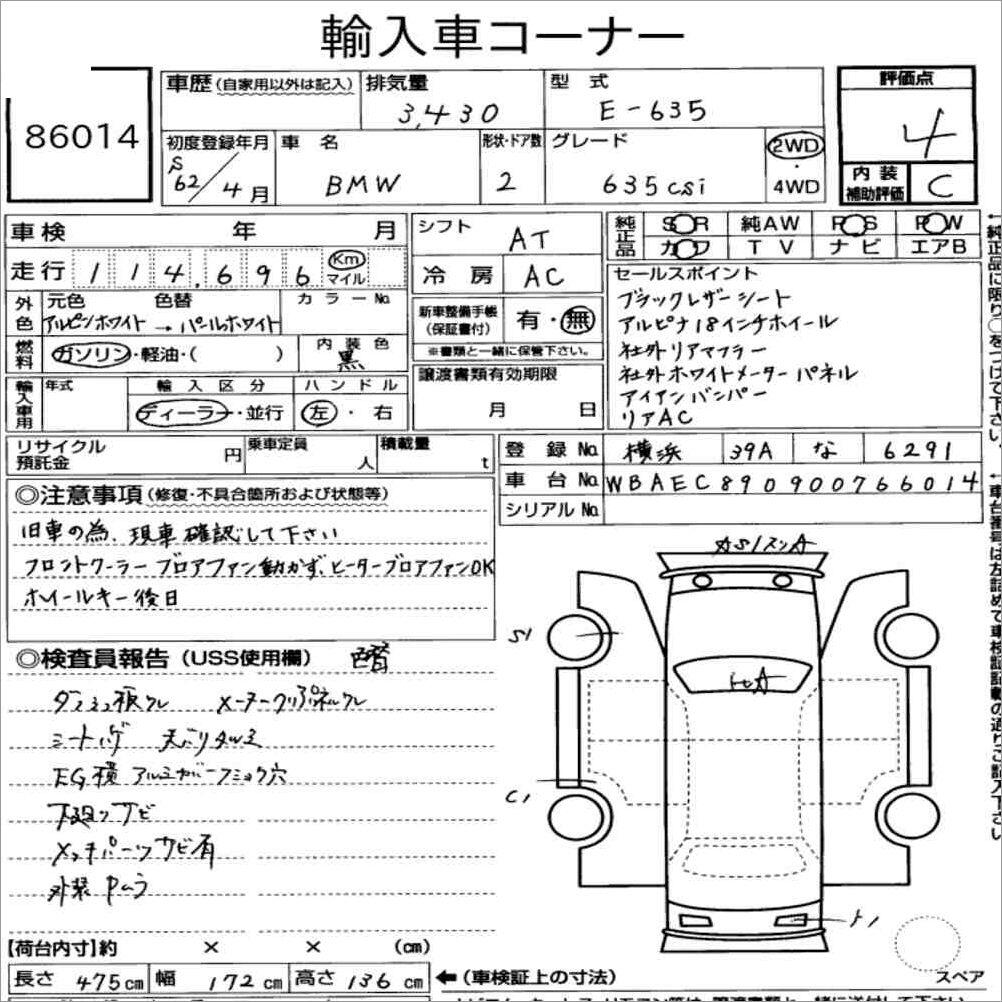 輸入車コーナー
86014
車歴(自家用以外は記入) 排気量 型式 評価点
3,430 E-635 4
初度登録年月 車名 形状・ドア数 グレード 2WD・4WD
S62/4月 BMW 2 635csi
内装補助評価 C
車検 年 月 シフト AT
走行 114,696 Km マイル 冷房 AC
純正品 SOR 純AW POS POW
カワ TV ナビ エアB
外色 元色 色替 カラーNo.
アルピンホワイト → パールホワイト
新車整備手帳(保証書付) 有・無
※書類と一緒に保管下さい。
燃料 ガソリン・軽油・( ) 内装色 黒
輸入車用 年式 輸入区分 ハンドル
ディーラー・並行 左・右
譲渡書類有効期限
月 日
セールスポイント
ブラックレザーシート
アルピナ18インチホイール
社外リアマフラー
社外ホワイトメーターパネル
アイアンバンパー
リアAC
リサイクル預託金 円 乗車定員 人 積載量 t
登録No. 横浜 39A な 6291
車台No. WBAEC890900766014
シリアルNo.
◎注意事項(修復・不具合箇所および状態等)
旧車の為、現車確認して下さい
フロントクーラーブロアファン動かず、ヒーターブロアファンOK
ホイールキー後日
◎検査員報告(USS使用欄) 色替
シートハゲ 天バリタルミ
下廻りサビ
メッキパーツサビ有
外装
S1
C1
【荷台内寸】約 × × (cm)
長さ 475cm 幅 172cm 高さ 136cm ←(車検証上の寸法)
スペア
↑純正品に限り○をつけて下さい。
↑車台番号は左詰めで車検証記載の通りご記入下さい